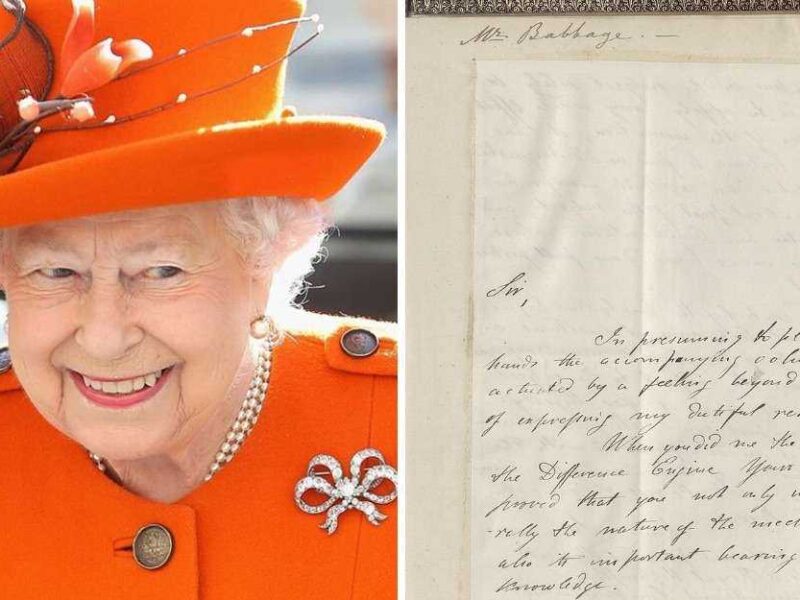 Mr. Babbage. —
Sir,
In presuming to pl
hands the accompanying colu
actuated by a feeling beyond
of expressing my dutiful res
When you did me the
the Difference Engine Your
proved that you not only u
-rally the nature of the mec
also its important bearing
knowledge.